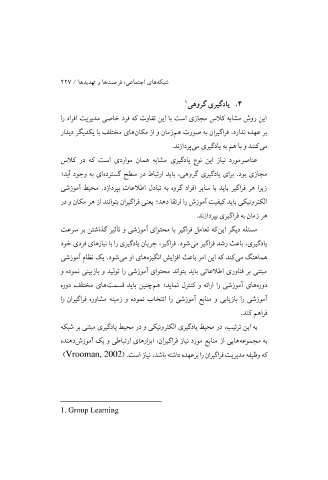 شبکه‌های اجتماعی؛ فرصت‌ها و تهدیدها / ۲۲۷
۴. یادگیری گروهی۱
این روش مشابه کلاس مجازی است با این تفاوت که فرد خاصی مدیریت افراد را
بر عهده ندارد. فراگیران به صورت هم‌زمان و از مکان‌های مختلف با یکدیگر دیدار
می‌کنند و با هم به یادگیری می‌پردازند.
عناصر مورد نیاز این نوع یادگیری مشابه همان مواردی است که در کلاس
مجازی بود. برای یادگیری گروهی، باید ارتباط در سطح گسترده‌ای به وجود آید؛
زیرا هر فراگیر باید با سایر افراد گروه به تبادل اطلاعات بپردازد. محیط آموزشی
الکترونیکی باید کیفیت آموزش را ارتقا دهد؛ یعنی فراگیران بتوانند از هر مکان و در
هر زمان به فراگیری بپردازند.
مسئله دیگر این‌که تعامل فراگیر با محتوای آموزشی و تأثیر گذاشتن بر سرعت
یادگیری، باعث رشد فراگیر می‌شود. فراگیر، جریان یادگیری را با نیازهای فردی خود
هماهنگ می‌کند که این امر باعث افزایش انگیزه‌های او می‌شود. یک نظام آموزشی
مبتنی بر فناوری اطلاعاتی باید بتواند محتوای آموزشی را تولید و بازبینی نموده و
دوره‌های آموزشی را ارائه و کنترل نماید؛ هم‌چنین باید قسمت‌های مختلف دوره
آموزشی را بازیابی و منابع آموزشی را انتخاب نموده و زمینه مشاوره فراگیران را
فراهم کند.
به این ترتیب، در محیط یادگیری الکترونیکی و در محیط یادگیری مبتنی بر شبکه
به مجموعه‌هایی از منابع مورد نیاز فراگیران، ابزارهای ارتباطی و یک آموزش‌دهنده
که وظیفه مدیریت فراگیران را برعهده داشته باشد، نیاز است. (Vrooman, 2002)
1. Group Learning